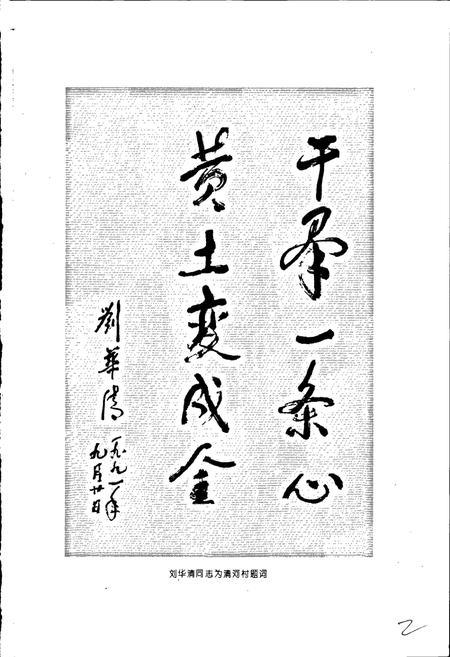 干群一条心
黄土变成金
劉華清
一九九一年
九月廿日
刘华清同志为清河村题词
2